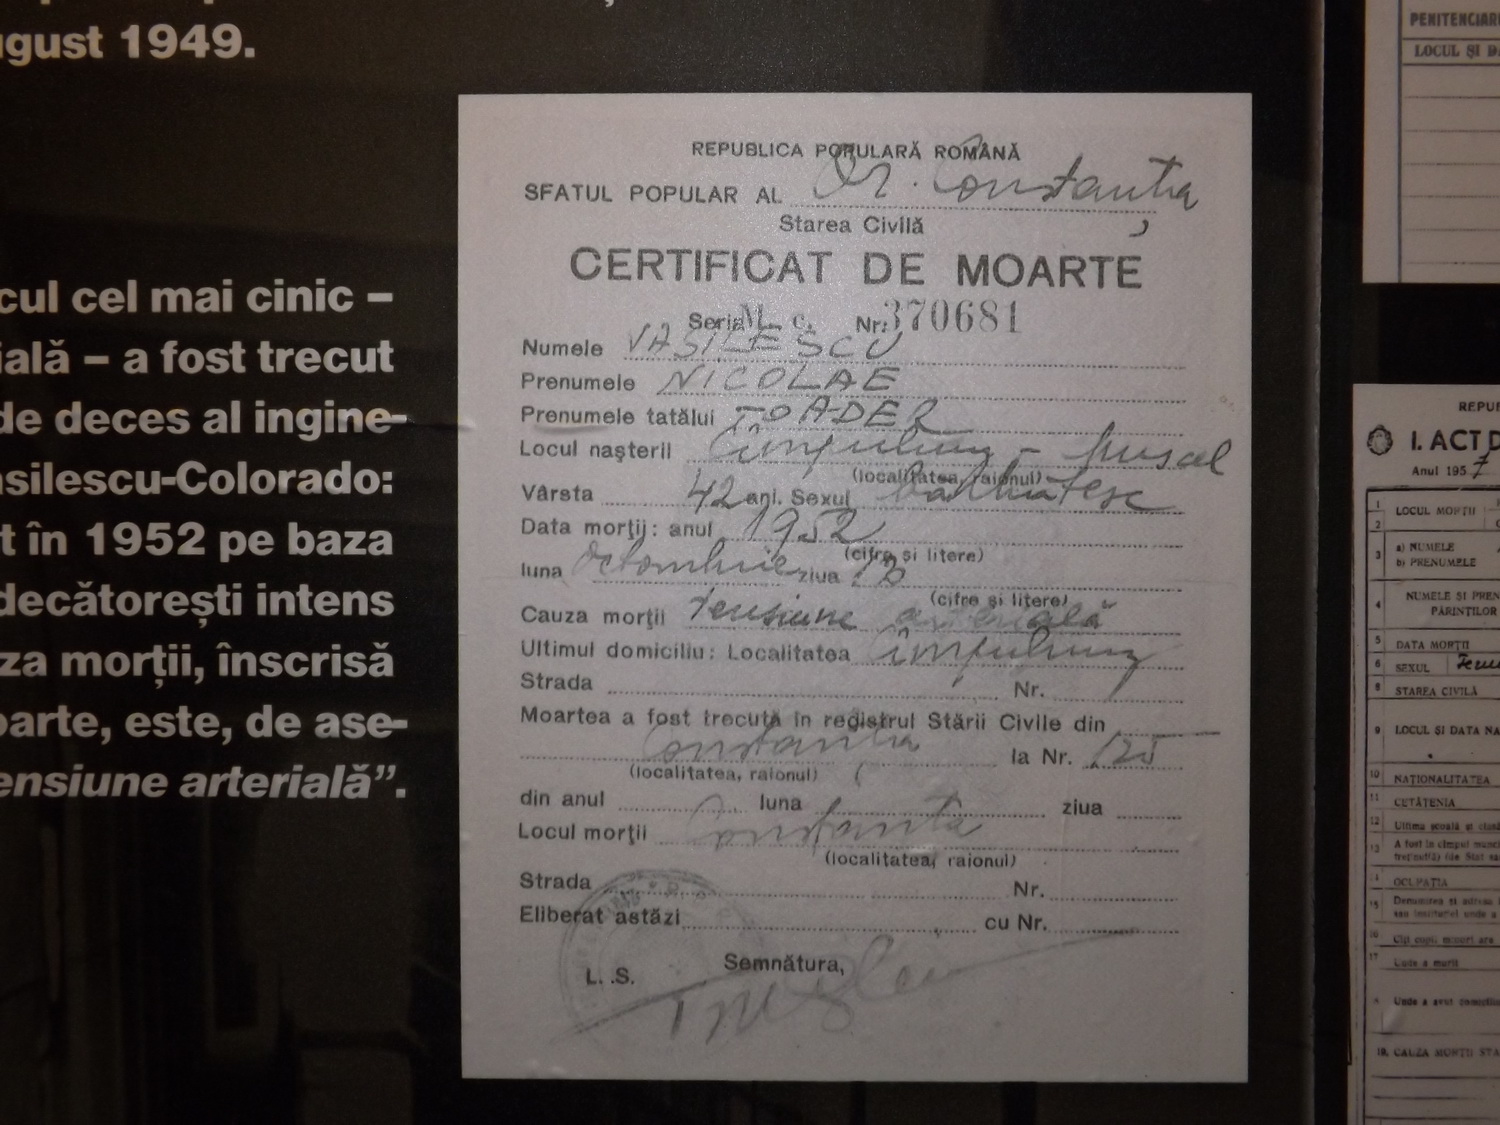 ugust 1949.
cul cel mai cinic –
ială – a fost trecut
de deces al ingine-
asilescu-Colorado:
t în 1952 pe baza
decătorești intens
za morții, înscrisă
oarte, este, de ase-
ensiune arterială”.
REPUBLICA POPULARĂ ROMÂNĂ
SFATUL POPULAR AL Or. Constanța
Starea Civilă
CERTIFICAT DE MOARTE
Seria M. c. Nr. 370681
Numele VASILESCU
Prenumele NICOLAE
Prenumele tatălui TOADER
Locul nașterii Cîmpulung - Muscel
(localitatea, raionul)
Vârsta 42 ani. Sexul bărbătesc
Data morții: anul 1952
(cifre și litere)
luna Octombrie ziua
(cifre și litere)
Cauza morții Tensiune arterială
Ultimul domiciliu: Localitatea Cîmpulung
Strada Nr.
Moartea a fost trecută în registrul Stării Civile din
Constanța la Nr. 125
(localitatea, raionul)
din anul luna ziua
Locul morții Constanta
(localitatea, raionul)
Strada Nr.
Eliberat astăzi cu Nr.
Semnătura,
L. S.
PENITENCIAR
LOCUL ȘI DA
REPU
I. ACT D
Anul 1957
1 LOCUL MORȚII
2
3 a) NUMELE
b) PRENUMELE
4 NUMELE ȘI PREN
PĂRINȚILOR
5 DATA MORȚII
6 SEXUL Fem
8 STAREA CIVILĂ
9 LOCUL ȘI DATA NA
10 NAȚIONALITATEA
11 CETĂȚENIA
12 Ultima școală
13 A fost în cîmpul munc
OCUPAȚIA
15 Denumirea și adresa
sau instituției unde a
Cîți copii minori are
17 Unde a murit
Unde a avut domiciliu
19. CAUZA MORȚII STA